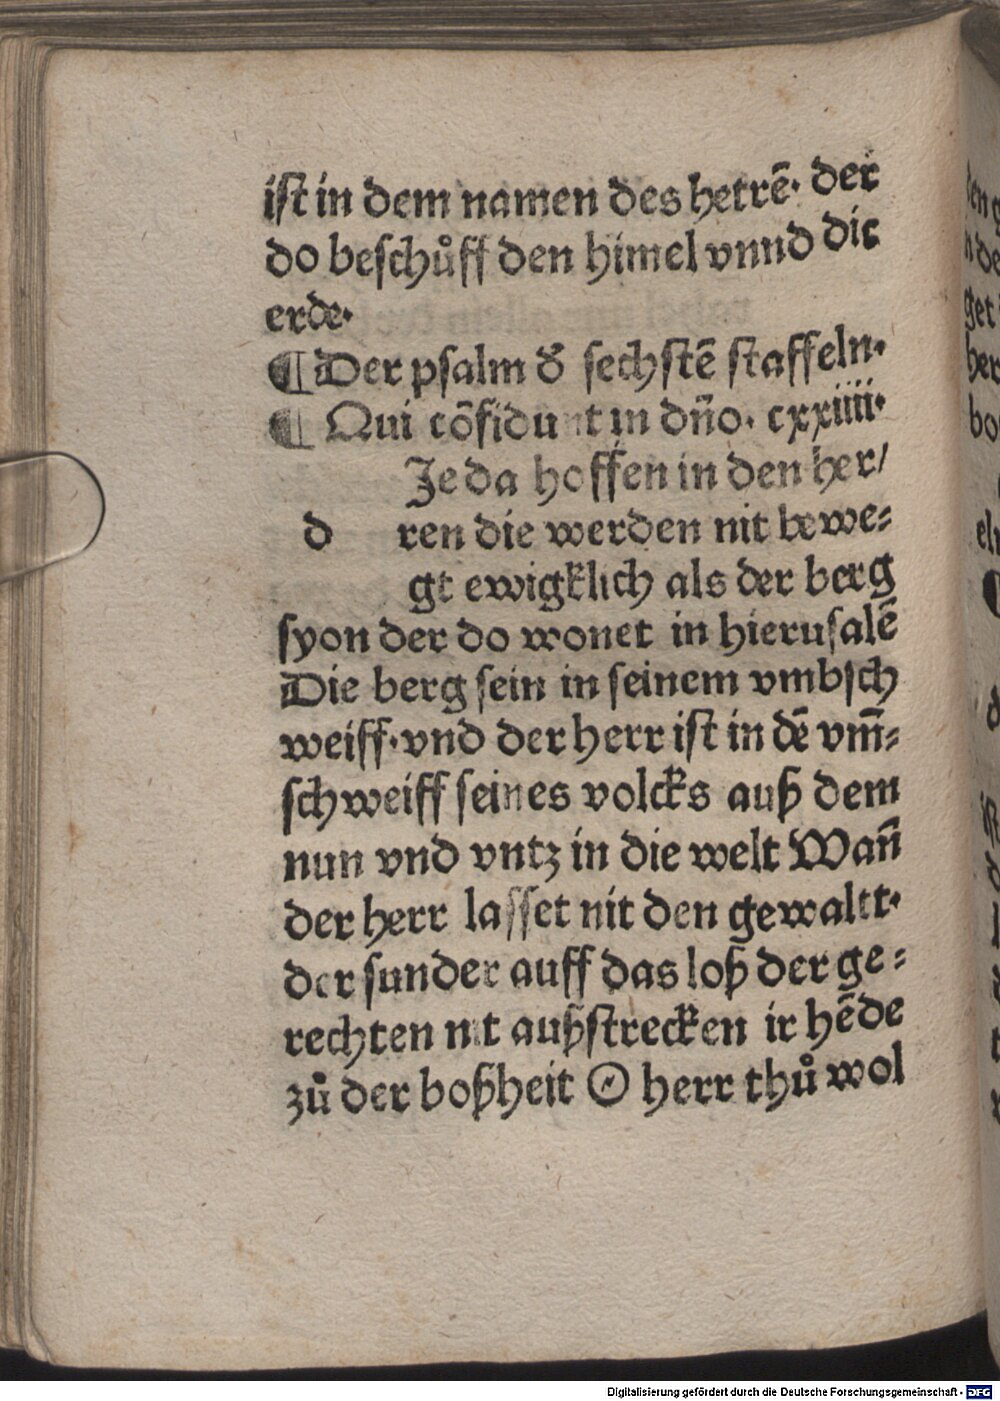 iſt in dem namen des hetrē· der
do beſchůff den himel vnnd die
erde·
¶ Der pſalm d͛ ſechſtē ſtaffeln·
¶ Qui cōfidunt in dn̄o· cxxiiii·
Je da hoffen in den her/
d ren die werden nit bewe⸗
gt ewigklich als der berg
ſyon der do wonet in hieruſalē
Die berg ſein in ſeinem vmbſch
weiff·vnd der herr iſt in dē vm̄⸗
ſchweiff ſeines volcks auß dem
nun vnd vntz in die welt Wan̄
der herr laſſet nit den gewaltt·
der ſunder auff das loß der ge⸗
rechten nit außſtrecken ir hēde
zů der boßheit O herr thů wol
Digitalisierung gefördert durch die Deutsche Forschungsgemeinschaft - DFG